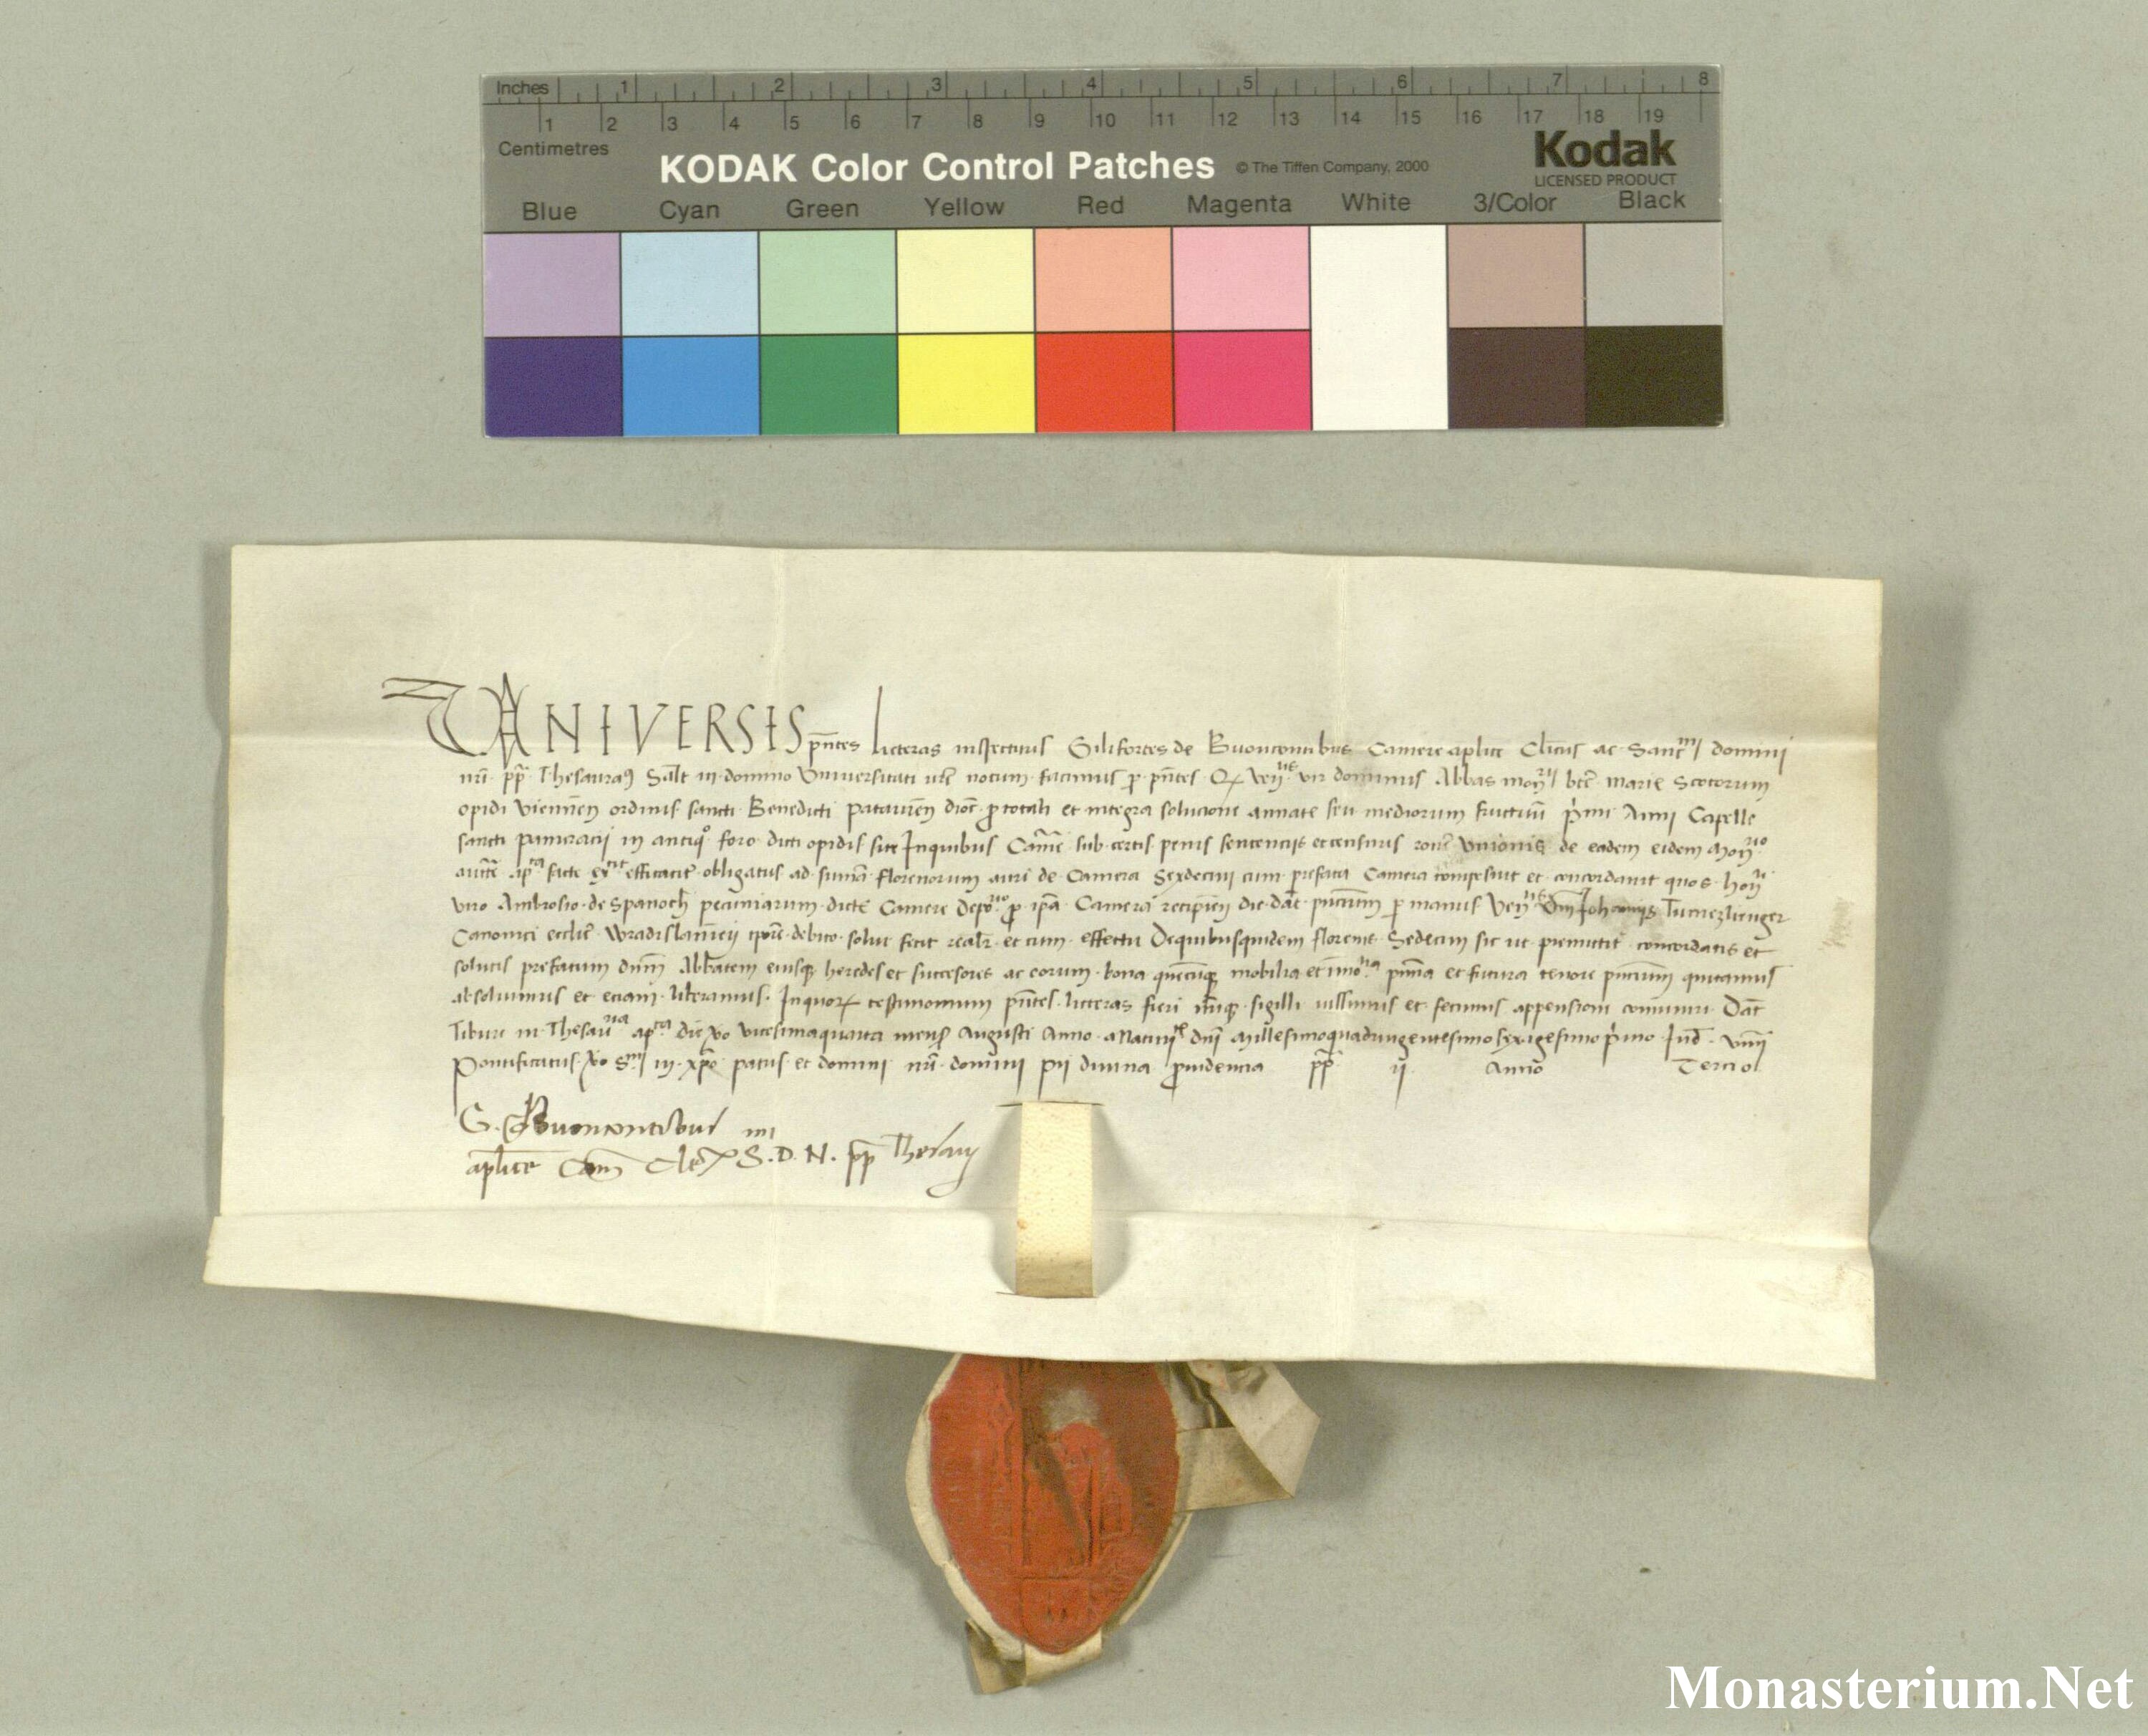 Inches 1 2 3 4 5 6 7 8
1 2 3 4 5 6 7 8 9 10 11 12 13 14 15 16 17 18 19
Centimetres
KODAK Color Control Patches © The Tiffen Company, 2000 Kodak
LICENSED PRODUCT
Blue Cyan Green Yellow Red Magenta White 3/Color Black
UNIVERSIS pn̄tes licteras inspecturus Gilifortes de Buoncontibus Camere aplice Cl̄icus ac Sanc^mi domini
nr̄i pp̄ Thesaurarius Sal̄t in domino Universitati vr̄e notum facimus p pn̄tes Ven^lis vir dominus Abbas mon^rii btē Marie Scotorum
opidi Viennen̄ ordinis sancti Benedicti Patavien̄ dioc̄ p totali et integra solucione annate seu mediorum fructuū primi Anni Capelle
sancti panncracii in antiqo foro dicti opidi site In quibus Camē sub certis penis sentenciis et censuris Unionis de eadem eidem Mon^rio
auctē ap^ca facte efficaciter obligatus ad sum̄a florenorum auri de Camera Sexdecim cum prefata Camera composuit et concordavit quos hon^li
viro Ambrosio de Spanoch̄ pecuniarum dicte Camere Depo^rio p ipā Camera recipien̄ die dat̄ pn̄cium p manus Ven^lis Dn̄i Johannis
Canonici ecclie Wradislavien̄ tpore debito solvi fecit realr̄ et cum effectu De quibusquidem florenis Sedecim sic ut premittit concordatis et
solutis prefatum dn̄m Abbatem eiusq heredes et successores ac eorum bona quecūq mobilia et im̄o^lia pn̄tia et futura tenore pn̄cium quitamus
absolvimus et eciam liberamus In quor testimonium pn̄tes licteras fieri sigilli iussimus et fecimus appensione communiri Dat̄
Tibure in Thesau^ria ap^ca die vicesimaquarta mens Augusti Anno a Nativi^te dn̄i Millesimoquadringentesimosexagesimo primo Ind̄ viiii
Pontificatus S^mi in xpo patris et domini nr̄i domini pii divina providencia pp̄ ii Anno Tercio
G. Buoncontibus
aplice Cam Cle S. D. N. pp Thesau
Monasterium.Net